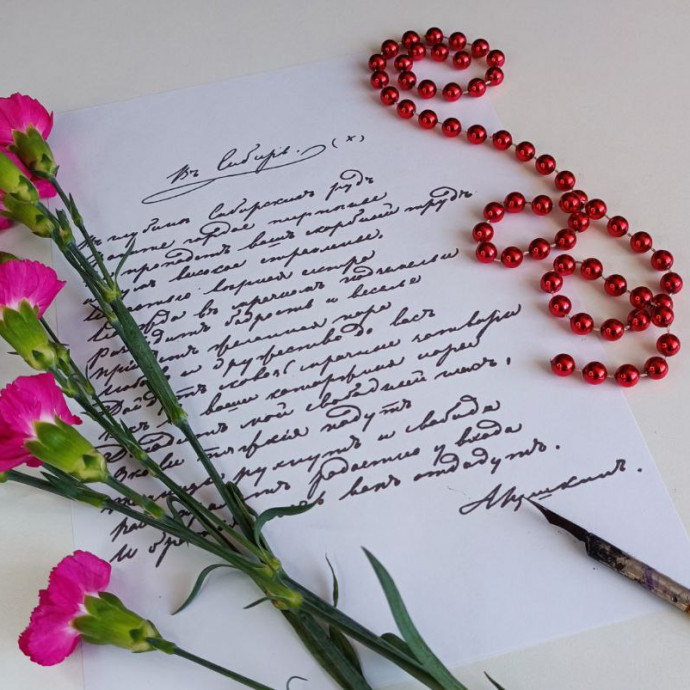 Въ Сибирь. (х)
глубинѣ Сибирскихъ рудъ
гордое терпѣнье
пропадетъ вашъ скорбный трудъ
думъ высокое стремленье.
вѣрная сестра
Надежда въ мрачномъ подземельи
Разбудитъ бодрость и веселье
Придетъ желанная пора
Любовь и дружество до васъ
Дойдутъ сквозь мрачные затворы
Какъ въ ваши каторжныя норы
Доходитъ мой свободный гласъ,
Оковы тяжкія падутъ
Темницы рухнутъ и свобода
радостно у входа
И вамъ отдадутъ.
А Пушкинъ.